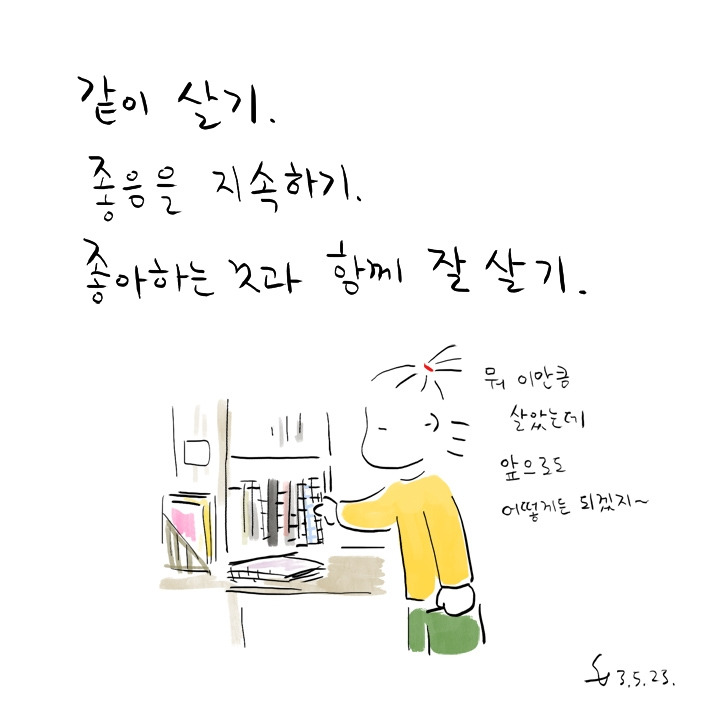 같이 살기.
좋음을 지속하기.
좋아하는 것과 함께 잘 살기.
뭐 이만큼
살았는데
앞으로도
어떻게든 되겠지~
3.5.23.